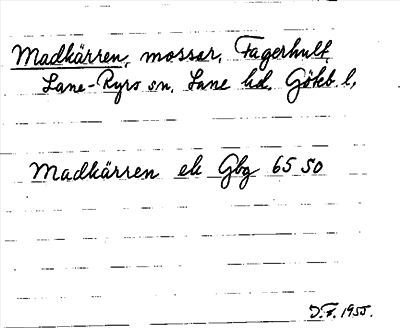 Madkärren, mossar, Fagerhult,
Lane-Ryrs sn, Lane hd, Göteb. l,
Madkärren ek Gbg 65 50
J.F. 1955.